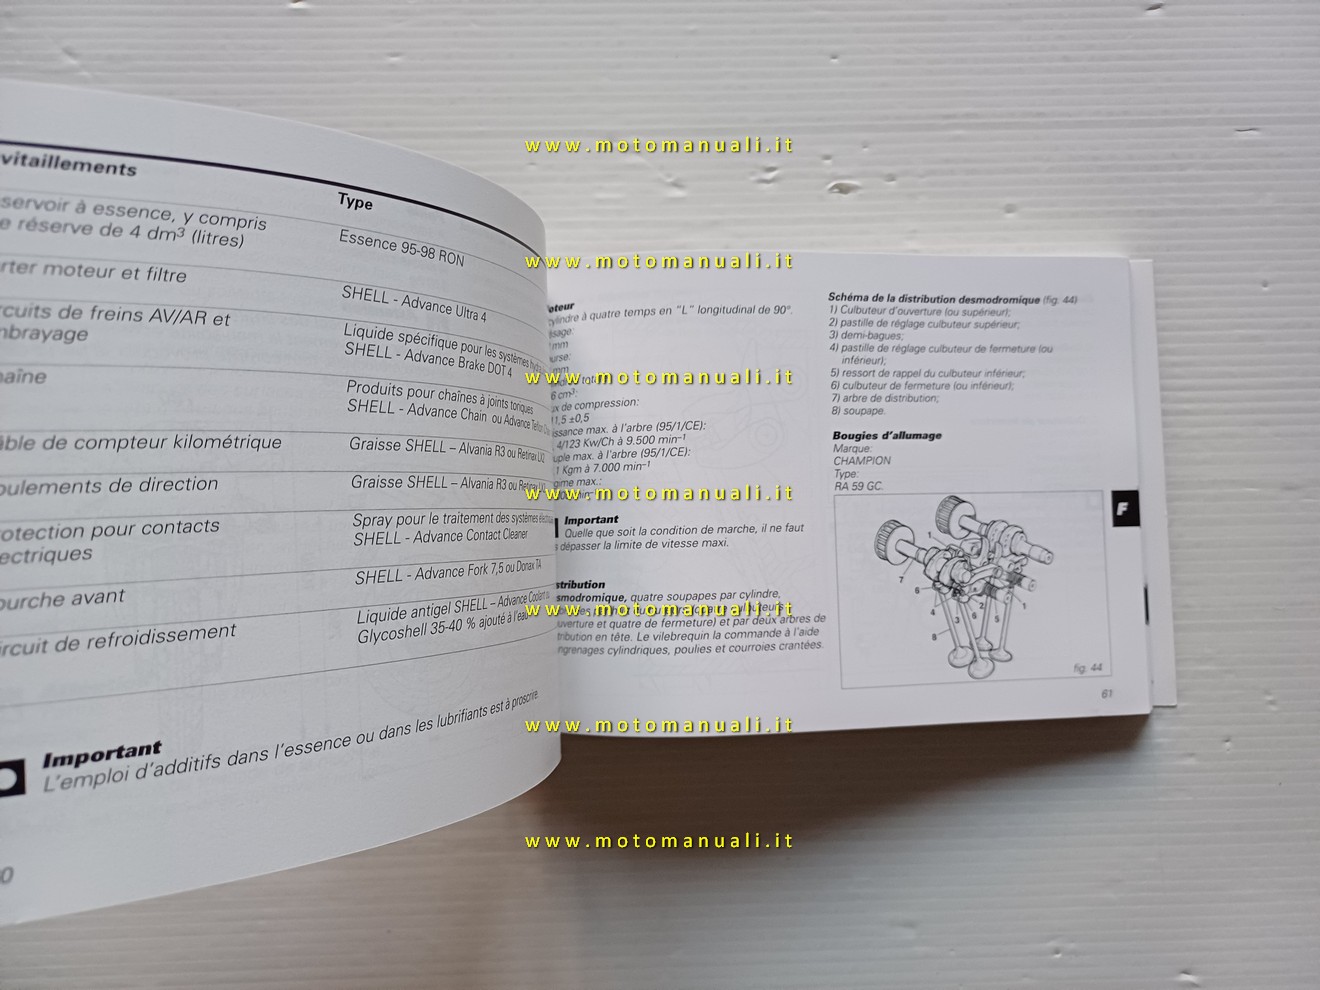 vitaillements
Type
servoir à essence, y compris
e réserve de 4 dm³ (litres)
Essence 95-98 RON
rter moteur et filtre
SHELL - Advance Ultra 4
rcuits de freins AV/AR et
mbrayage
Liquide spécifique pour les systèmes hydra
SHELL - Advance Brake DOT 4
haîne
Produits pour chaînes à joints toriques
SHELL - Advance Chain ou Advance Teflon
âble de compteur kilométrique
Graisse SHELL – Alvania R3 ou Retinax LX2
oulements de direction
Graisse SHELL – Alvania R3 ou Retinax LX2
rotection pour contacts
lectriques
Spray pour le traitement des systèmes élect
SHELL - Advance Contact Cleaner
ourche avant
SHELL - Advance Fork 7,5 ou Donax TA
ircuit de refroidissement
Liquide antigel SHELL – Advance Coolant ou
Glycoshell 35-40 % ajouté à l'eau
Important
L'emploi d'additifs dans l'essence ou dans les lubrifiants est à proscrire.
0
oteur
cylindre à quatre temps en "L" longitudinal de 90°.
ésage:
mm
urse:
mm
6 cm³:
ux de compression:
11,5 ±0,5
issance max. à l'arbre (95/1/CE):
4/123 Kw/Ch à 9.500 min⁻¹
uple max. à l'arbre (95/1/CE):
1 Kgm à 7.000 min⁻¹
gime max.:
Important
Quelle que soit la condition de marche, il ne faut
dépasser la limite de vitesse maxi.
stribution
smodromique, quatre soupapes par cylindre,
uverture et quatre de fermeture) et par deux arbres de
tribution en tête. Le vilebrequin la commande à l'aide
ngrenages cylindriques, poulies et courroies crantées.
Schéma de la distribution desmodromique (fig. 44)
1) Culbuteur d'ouverture (ou supérieur);
2) pastille de réglage culbuteur supérieur;
3) demi-bagues;
4) pastille de réglage culbuteur de fermeture (ou
inférieur);
5) ressort de rappel du culbuteur inférieur;
6) culbuteur de fermeture (ou inférieur);
7) arbre de distribution;
8) soupape.
Bougies d'allumage
Marque:
CHAMPION
Type:
RA 59 GC.
F
1
7
6
4
3
5
2
5
1
8
fig. 44
61
www.motomanuali.it
www.motomanuali.it
www.motomanuali.it
www.motomanuali.it
www.motomanuali.it
www.motomanuali.it
www.motomanuali.it